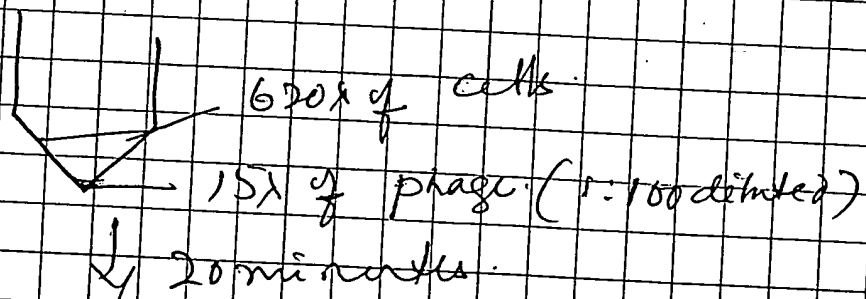 620λ of cells.
15λ of phage. (1:100 diluted)
20 minutes.